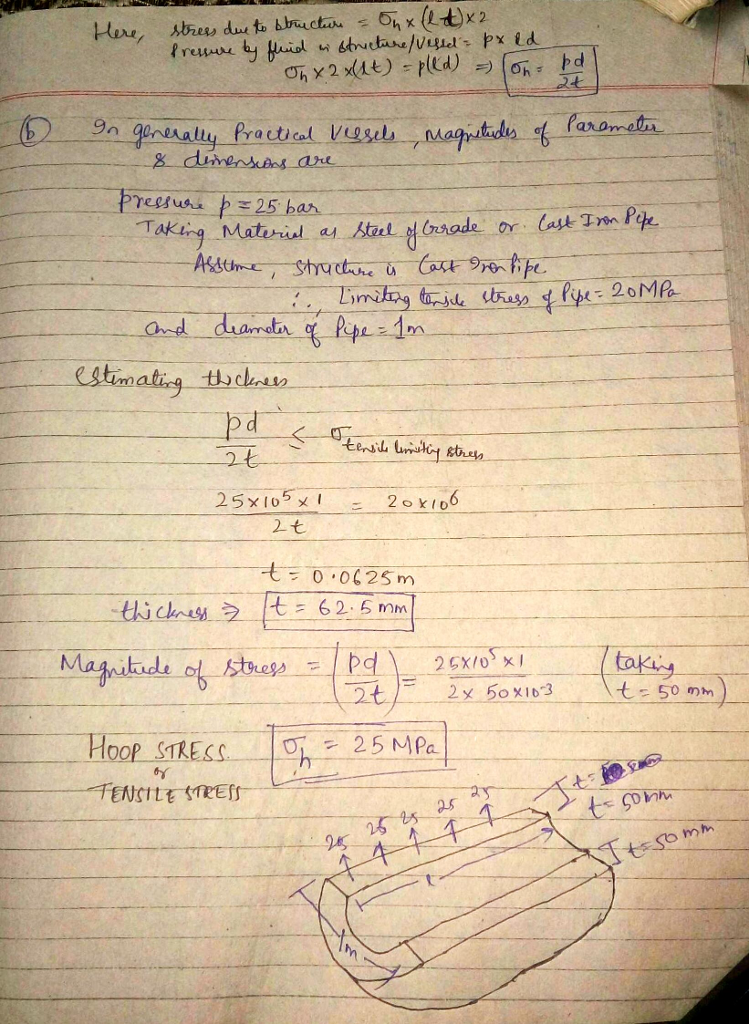 Here, stress due to structure = σh x (l t) x 2
Pressure by fluid in structure/Vessel = p x l d
σh x 2 x (l t) = p(l d) => σh = pd/2t
(b) In generally Practical Vessels, Magnitudes of Parameter
& dimensions are
pressure p = 25 bar
Taking Material as Steel of Grade or Cast Iron Pipe
Assume, structure is Cast Iron Pipe.
∴, Limiting tensile stress of Pipe = 20 MPa
and diameter of Pipe = 1m
Estimating thickness
pd/2t ≤ σ tensile limiting stress
25x10^5 x 1/2t = 20x10^6
t = 0.0625m
thickness => t = 62.5 mm
Magnitude of stress = (pd/2t) = 25x10^5 x 1/2x 50x10^-3 (taking t = 50 mm)
HOOP STRESS σh = 25 MPa
or
TENSILE STRESS
t =
t = 50mm
25 25 25 25 25
t = 50 mm
l
1m